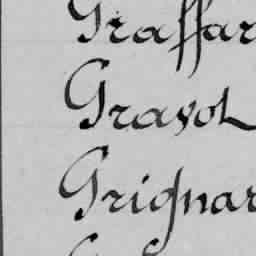 Graffar
Gravol
Grignar